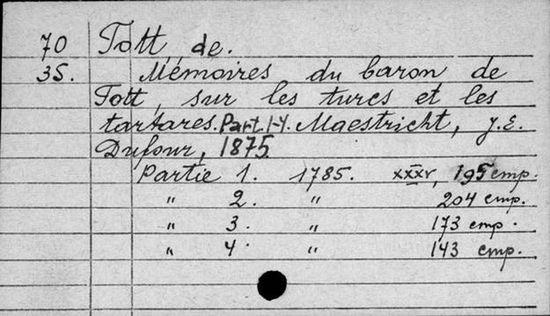 70 Тott, de.
35. Mémoires du baron de
Tott, sur les turcs et les
tartares. Part. 1-4. Maestricht, J.E.
Dufour, 1875
Partie 1. 1785. xxxv, 195 стр.
" 2. " 204 стр.
" 3. " 173 стр.
" 4. " 143 стр.